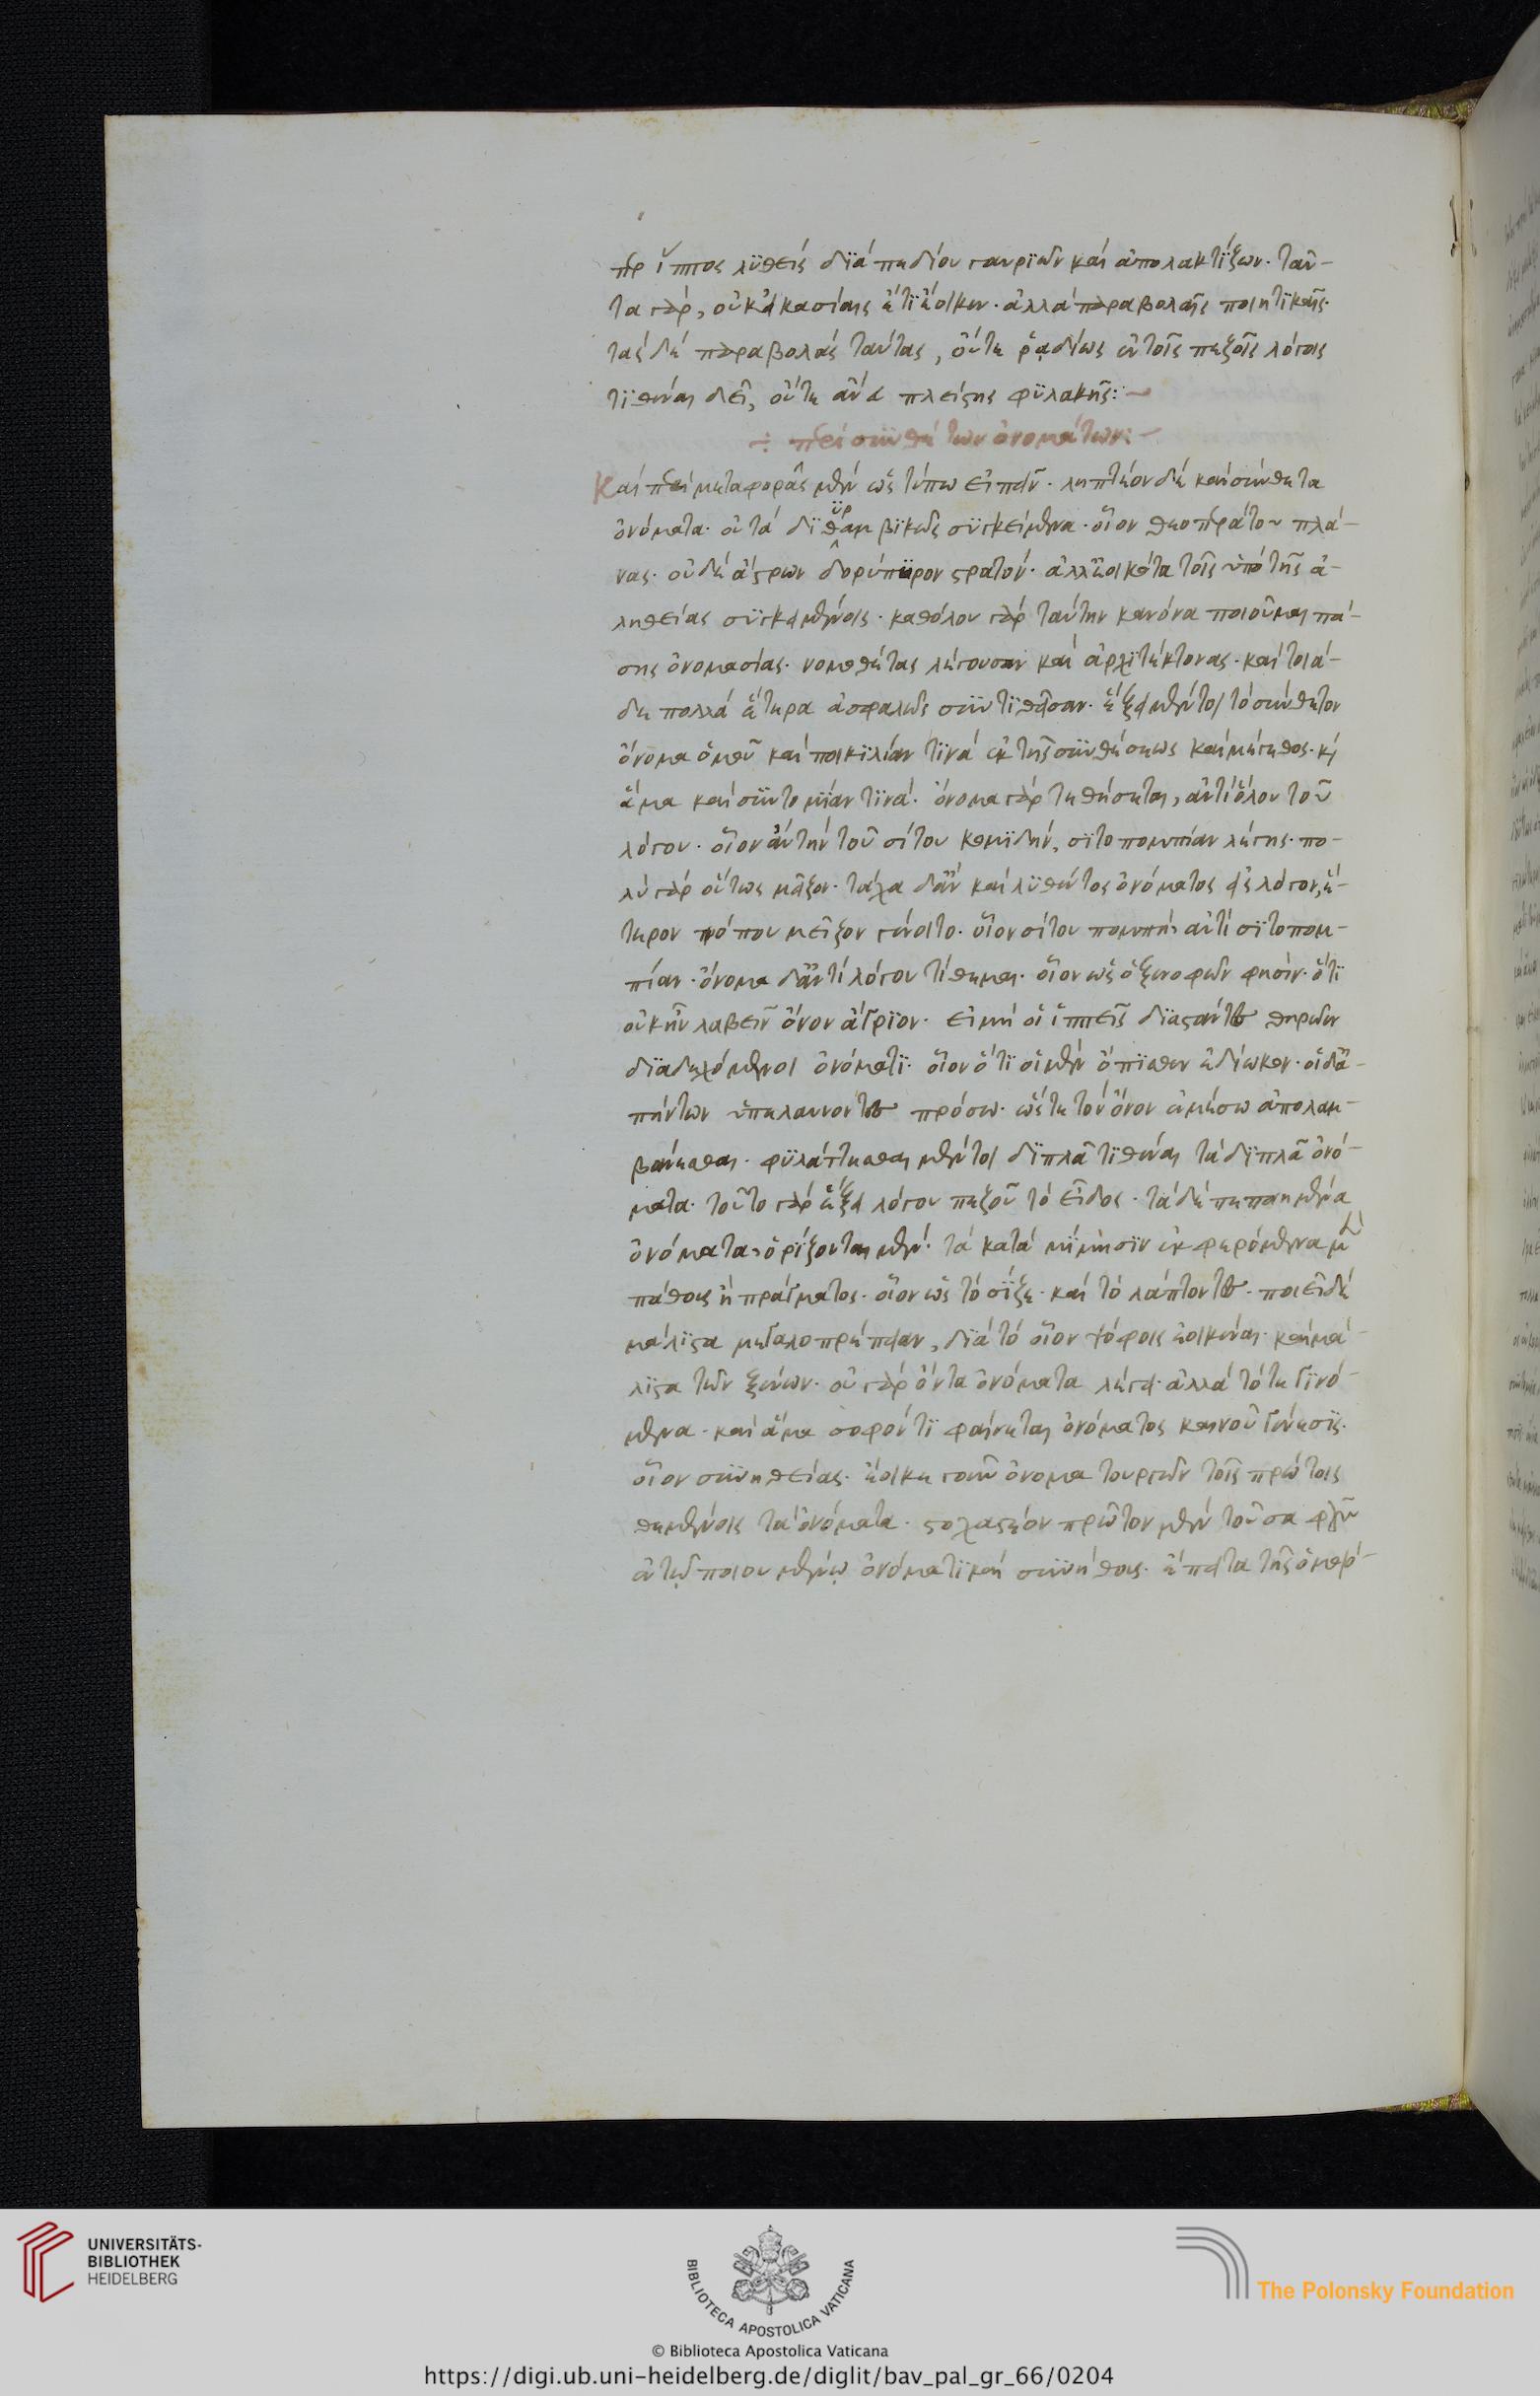 περ ἵππος λϋθεὶς δϊὰ πεδίου γαυριῶν καὶ ἀπολακτΐζων· ταῦ-
τα γὰρ, οὐκ εἰκασίαις ἔτϊ ἔοικεν· ἀλλὰ παραβολαῖς ποιητϊκαῖς·
τὰς δὲ παραβολὰς ταύτας, οὔτε ῥᾳδίως ἐν τοῖς πεζοῖς λόγοις
τϊθέναι δεῖ, οὔτε ἄνευ πλείστης φϋλακῆς:
÷ περὶ συνθέτων ὀνομάτων:
Καὶ περὶ μεταφορᾶς μὲν ὡς τύπω εἰπεῖν· ληπτέον δὲ καὶ σύνθετα
ὀνόματα· οὐ τὰ δϊθϋραμβϊκῶς συγκείμενα· οἷον θεοτέρατον πλά-
νας· οὐδὲ ἄστρων δορύπϋρον στρατόν· ἀλλ' ἐοικότα τοῖς ὑπὸ τῆς ἀ-
ληθείας συγκειμένοις· καθόλου γὰρ ταύτην κανόνα ποιοῦμαι πά-
σης ὀνομασίας· νομοθέτας λέγουσαν καὶ ἀρχϊτέκτονας· καὶ τοιά-
δε πολλὰ ἕτερα ἀσφαλῶς συντϊθεῖσαν· ἕξει μέντοι τὸ σύνθετον
ὄνομα ὁμοῦ καὶ ποικϊλίαν τϊνὰ ἐκ τῆς συνθέσεως καὶ μέγεθος· κὶ
ἅμα καὶ συντομΐαν τϊνά· ὄνομα γὰρ τεθήσεται, ἀντὶ ὅλου τοῦ
λόγου· οἷον ἂν τὴν τοῦ σίτου κομϊδὴν, σϊτοπομπίαν λέγης· πο-
λὺ γὰρ οὕτως μεῖζον· τάχα δ' ἂν καὶ λϋθέντος ὀνόματος εἰς λόγον, ἕ-
τερον τρόπον μεῖζον γένοιτο· οἷον σίτου πομπὴν ἀντὶ σϊτοπομ-
πίαν· ὄνομα δ' ἀντὶ λόγου τίθεμαι· οἷον ὡς ὁ ξενοφῶν φησὶν· ὅτϊ
οὐκ ἦν λαβεῖν ὄνον ἄγρϊον· εἰ μὴ οἱ ἱππεῖς δϊαστάντες θηρῶεν
δϊαδεχόμενοι ὀνόματϊ· οἷον ὅτϊ οἱ μὲν ὄπϊσθεν ἐδίωκον· οἱ δ' ἀ-
πήντων ὑπελαύνοντες πρόσω· ὥστε τὸν ὄνον ἐν μέσω ἀπολαμ-
βάνεσθαι· φϋλάττεσθαι μέντοι δϊπλᾶ τϊθέναι τὰ δϊπλᾶ ὀνό-
ματα· τοῦτο γὰρ ἔξει λόγου πεζοῦ τὸ εἶδος· τὰ δὲ πεποιημένα
ὀνόματα, ὁρΐζονται μὲν· τὰ κατὰ μΐμησϊν ἐκφερόμενα
πάθους ἢ πράγματος· οἷον ὡς τὸ σΐζε· καὶ τὸ λάπτοντες· ποιεῖ δὲ
μάλϊστα μεγαλοπρέπειαν, δϊὰ τὸ οἷον ψόφοις ἐοικέναι· καὶ μά-
λϊστα τῶν ξένων· οὐ γὰρ ὄντα ὀνόματα λέγει· ἀλλὰ τότε γϊνό-
μενα· καὶ ἅμα σοφόν τϊ φαίνεται ὀνόματος καινοῦ γένεσϊς·
οἷον συνηθείας· ἔοικε γοῦν ὄνοματουργῶν τοῖς πρώτοις
θεμένοις τὰ ὀνόματα· στοχαστέον πρῶτον μὲν τοῦ σαφοῦς
ἐν τῷ ποιουμένῳ ὀνόματϊ καὶ συνήθους· ἔπειτα τῆς ὁμοι-
UNIVERSITÄTS-
BIBLIOTHEK
HEIDELBERG
BIBLIOTECA APOSTOLICA VATICANA
© Biblioteca Apostolica Vaticana
The Polonsky Foundation
https://digi.ub.uni-heidelberg.de/diglit/bav_pal_gr_66/0204